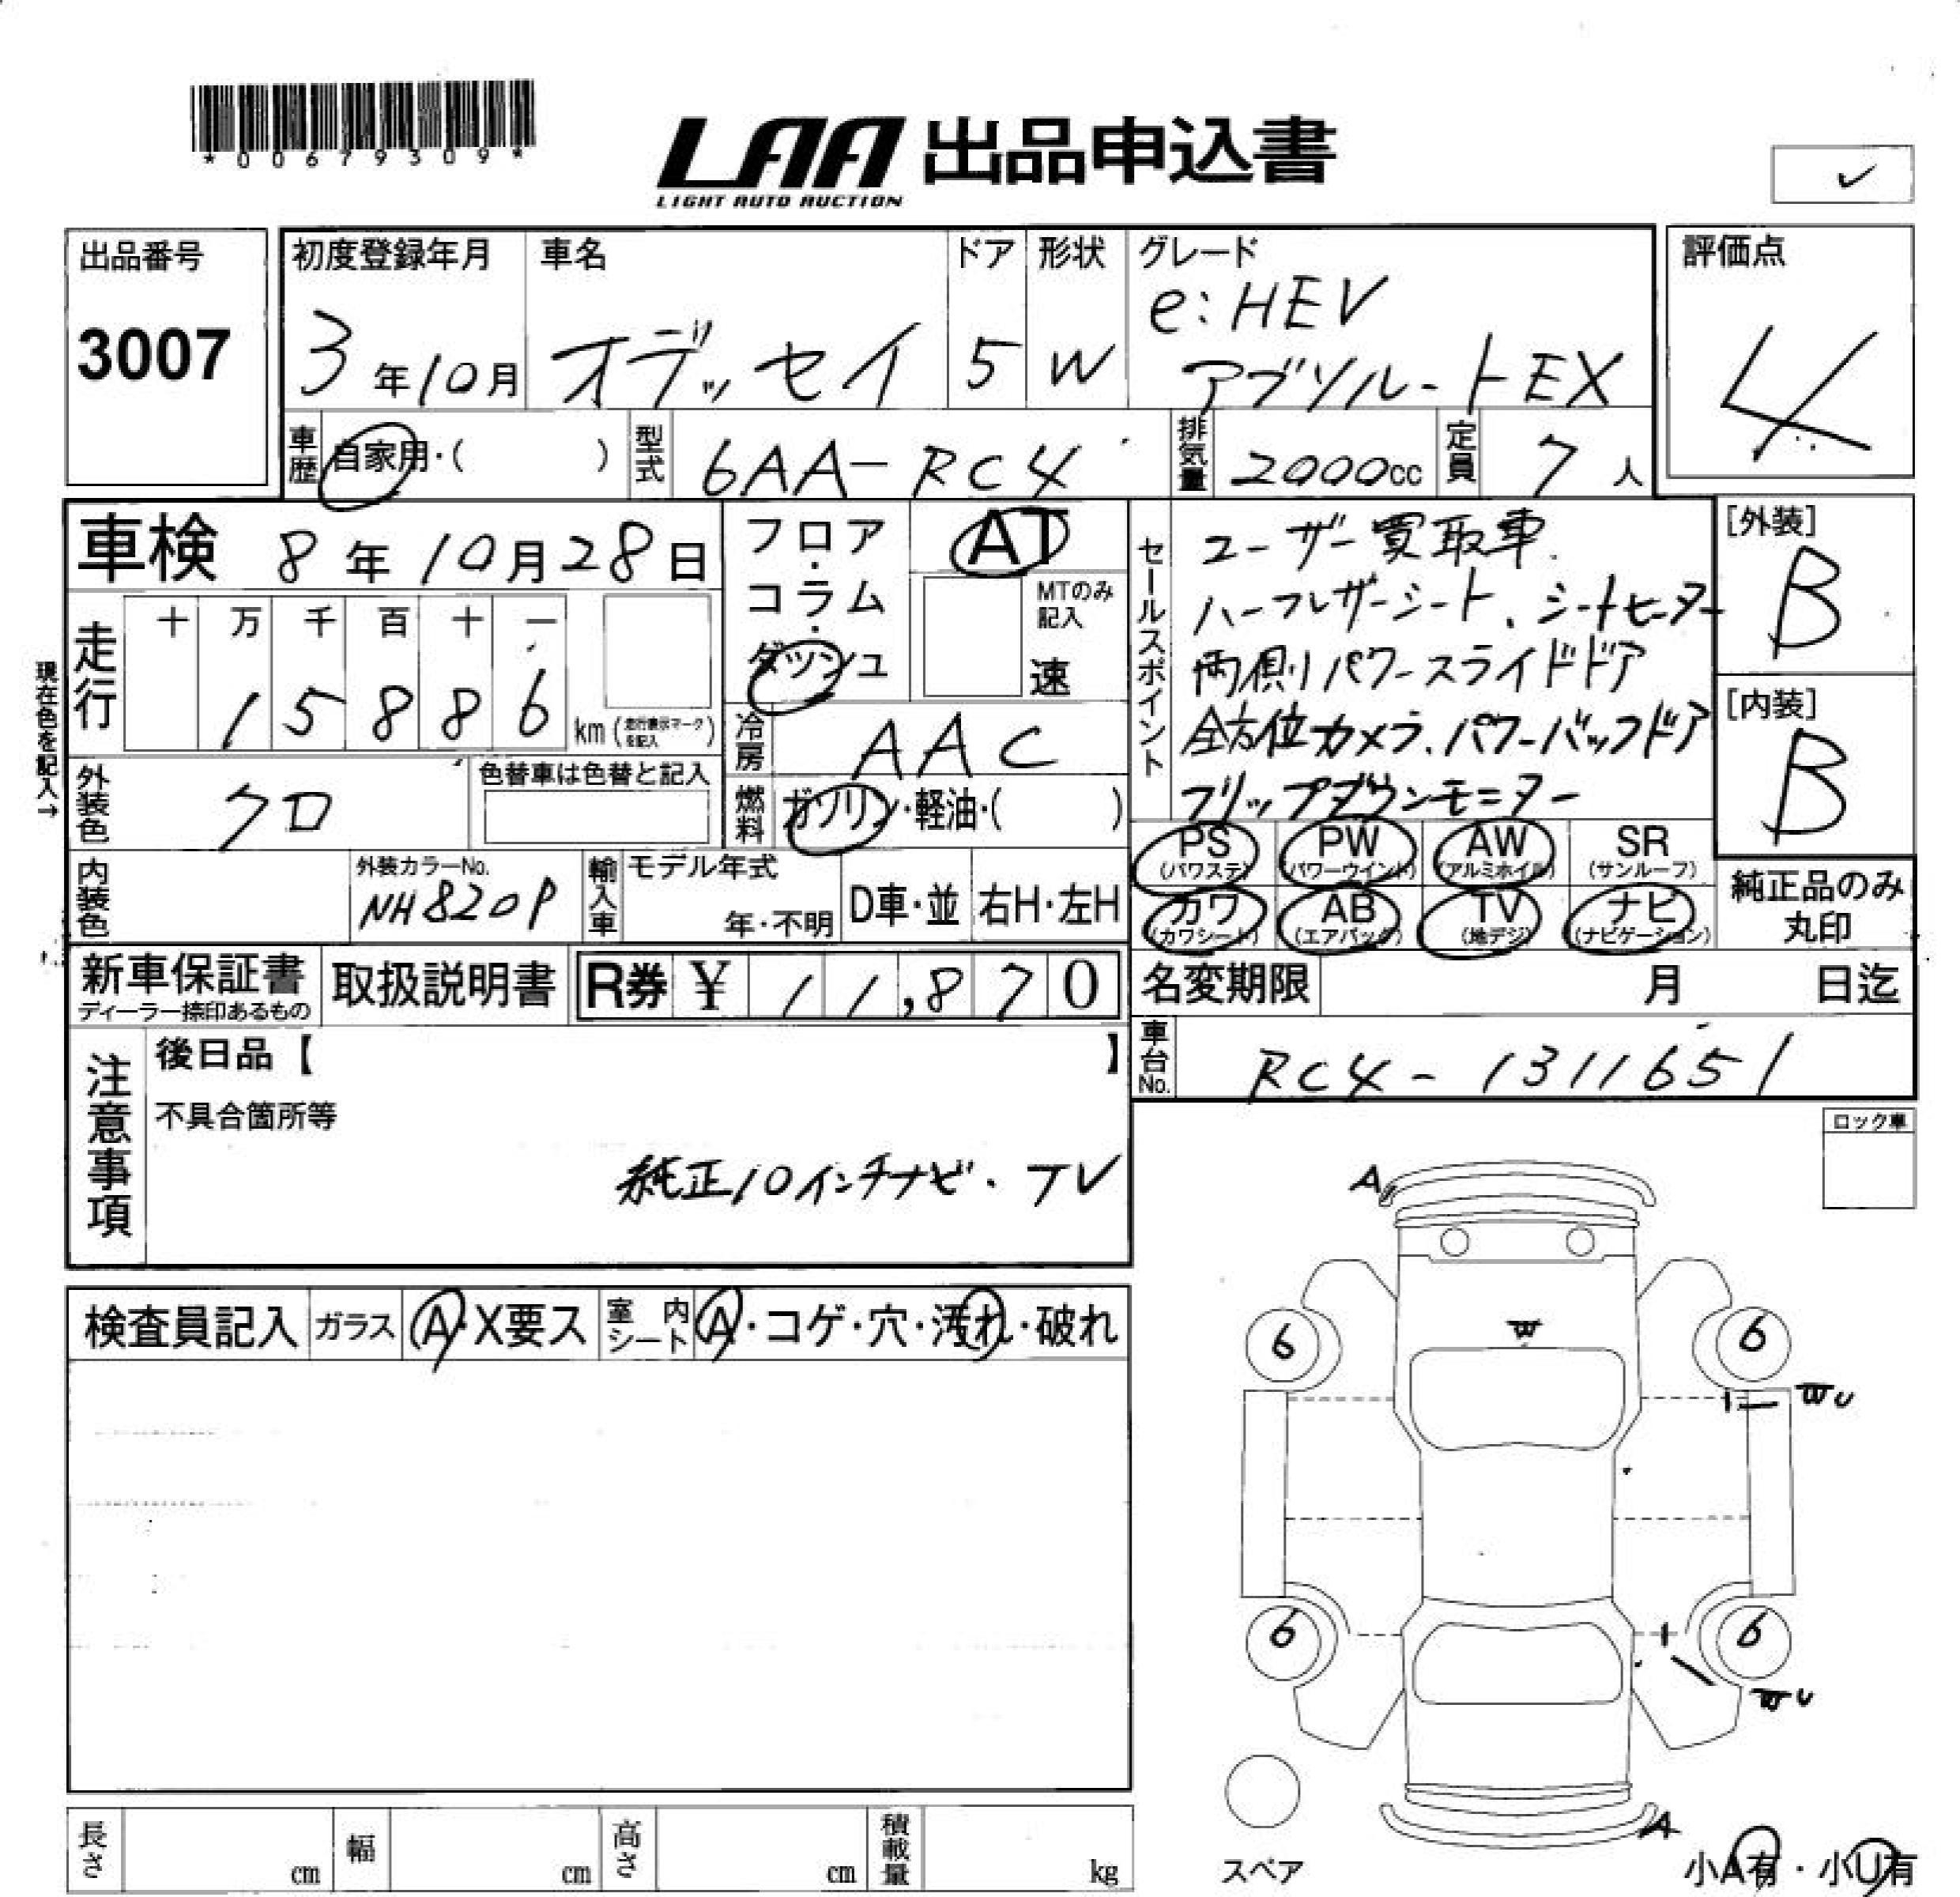 *00679309*
LAA 出品申込書
LIGHT AUTO AUCTION
出品番号
3007
初度登録年月
3年10月
車名
オデッセイ
ドア
5
形状
W
グレード
e:HEV
アブソルートEX
評価点
4
車歴
自家用・( )
型式
6AA-RC4
排気量
2000cc
定員
7人
車検 8年10月28日
フロア・コラム・ダッシュ
AT
MTのみ記入
速
セールスポイント
ユーザー買取車
ハーフレザーシート、シートヒーター
両側パワースライドドア
全方位カメラ、パワーバックドア
フリップダウンモニター
[外装]
B
[内装]
B
現在色を記入→
走行
十 万 千 百 十 一
1 5 8 8 6 km (走行表示マークを記入)
冷房
AAC
外装色
クロ
色替車は色替と記入
燃料
ガソリン・軽油・( )
PS (パワステ)
PW (パワーウインド)
AW (アルミホイル)
SR (サンルーフ)
カワ (カワシート)
AB (エアバック)
TV (地デジ)
ナビ (ナビゲーション)
純正品のみ丸印
内装色
外装カラーNo.
NH820P
輸入車
モデル年式
年・不明
D車・並
右H・左H
新車保証書
ディーラー捺印あるもの
取扱説明書
R券 ¥ 11,870
名変期限 月 日迄
車台No.
RC4-1311651
注意事項
後日品【 】
不具合箇所等
純正10インチナビ・TV
ロック車
検査員記入
ガラス
A・X要ス
室内シート
A・コゲ・穴・汚れ・破れ
A
6
W
6
WU
6
6
WU
A
スペア
小A有・小U有
長さ cm
幅 cm
高さ cm
積載量 kg